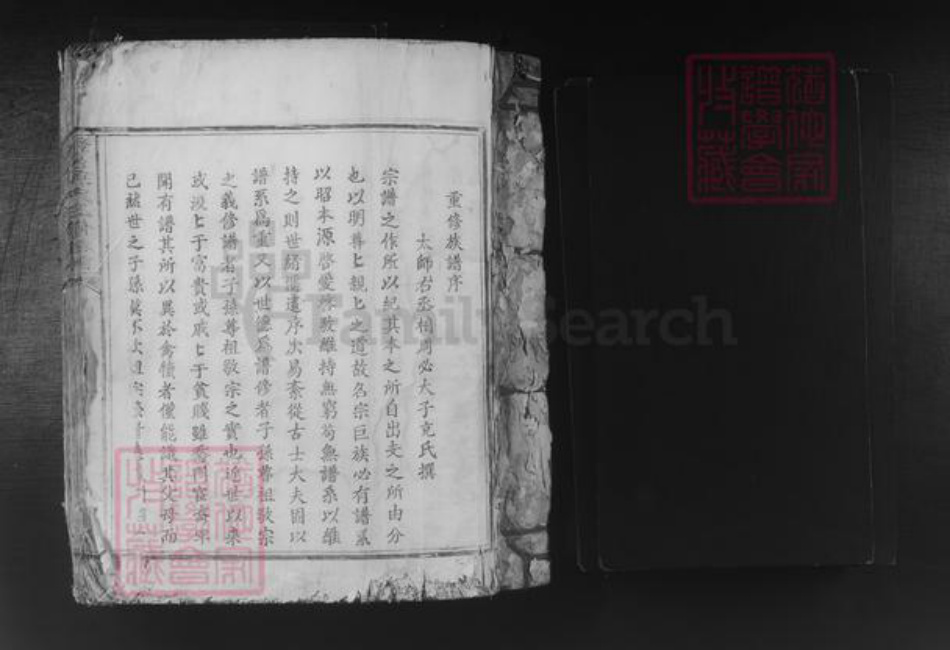 重修族譜序
太師右丞相周必大子充氏撰
宗譜之作所以紀其本之所自出支之所由分
也以明尊匕親匕之道故名宗巨族必有譜系
以昭本源啓愛敬維持無窮苟無譜系以維
持之則世緒遺序次易紊從古士大夫固以
譜系爲重又以世德爲譜修者子孫尊祖敬宗
之義修譜者子孫尊祖敬宗之實也近世以來
或汲匕于富貴或戚匕于貧賤雖
開有譜其所以異於禽犢者僅能識其父母而
已 世之子孫
FamilySearch